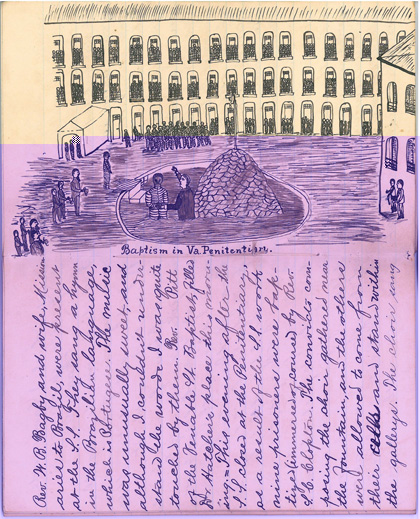 Baptism in Va. Penitentiary.
Rev. W. B. Bagby and wife, Mission-
aries to Brazil, were present
at the S.S. They sang a hymn
in the Brazilian language,
which is Portugese. The music
was unusually sweet, and
although I couldn't under-
stand the words I was quite
touched by them. Rev. Pitt
of the Venable St. Baptist, filled
Dr Hatcher's place this morn-
ing = This evening after the
S.S. closed at the Penitentiary,
as a result of the S.S. work
nine prisoners were bap-
by Rev.
S.C. Clopton. The convicts com-
posing the choir gathered near
the fountain, and the others
were allowed to come from
their cells and stand within
the gallerys. The choir sung